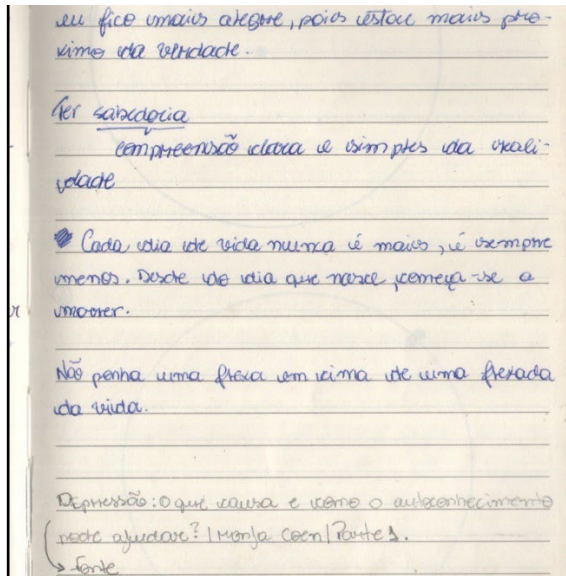 eu fico mais alegre, pois estou mais pro-
ximo da verdade.
Ter sabedoria
compreensão clara e simples da reali-
dade
Cada dia de vida nunca é mais, é sempre
menos. Desde do dia que nasce, começa-se a
morrer.
Não ponha uma flexa em cima de uma flexada
da vida.
Depressão: O que causa e como o autoconhecimento
pode ajudar? | Monja Coen | Parte 1.
fonte